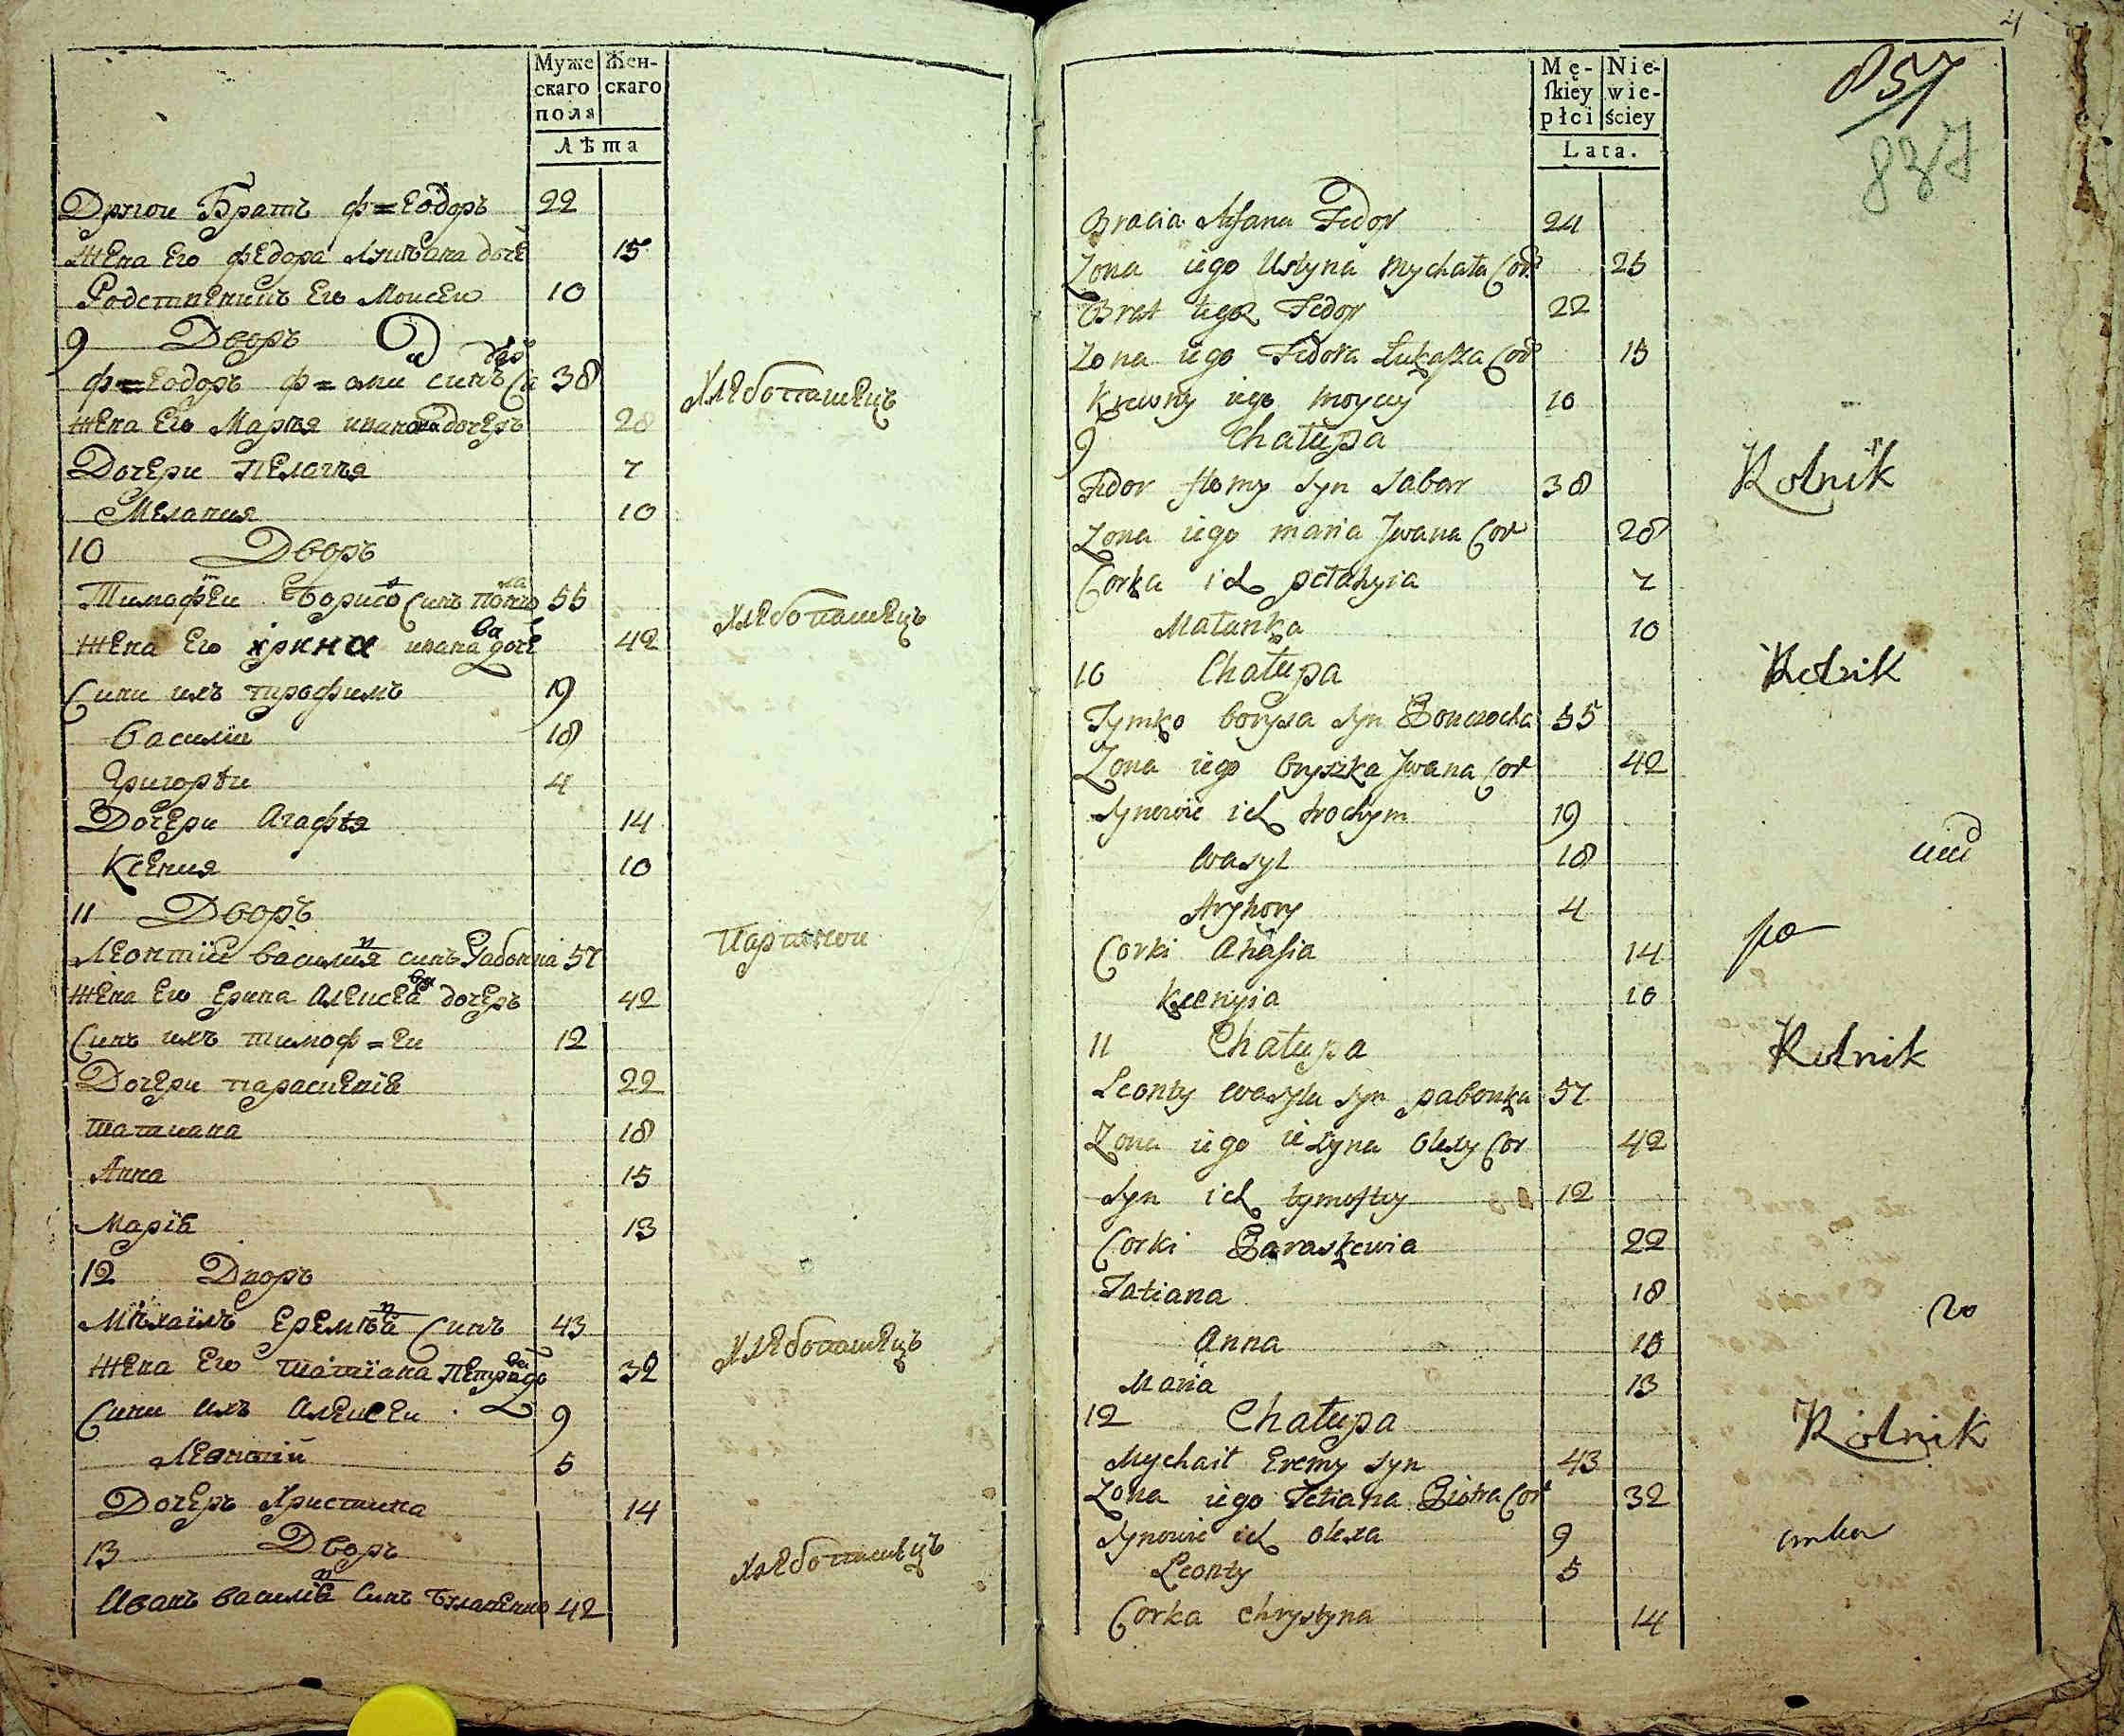 Муже Жен-
скаго скаго
пола
Лѣта
Други Братъ ф=еодоръ 22
Жена Его федора дочь 15
Родственникъ Его Моисеи 10
9 Дворъ
ф=еодоръ ф=оми синъ 38 Хлебопашецъ
Жена Его Маръя иванова дочеръ 28
Дочери Пелагъя 7
Мелания 10
10 Дворъ
Тимофеи Борисо Синъ 55 Хлебопашецъ
Жена Его ірина ивана ва доче 42
Сини ихъ трофимъ 19
Василии 18
Григорѣи 4
Дочери Агафѣя 14
Ксения 10
11 Дворъ
Леонтии василия синъ 57 Партнои
Жена Его Ерина Алексеа дочеръ 42
Синъ ихъ тимоф=еи 12
Дочери 22
татиана 18
Анна 15
13
12 Дворъ
Михаилъ Еремѣа Синъ 43 Хлебопашецъ
Жена Его татїана Петра ва до 32
Сини ихъ Алексеи 9
Леонтїй 5
Дочеръ Христина 14
13 Дворъ Хлебопашецъ
Иванъ василїв Синъ 42
4
Mę- Nie-
ſkiey wie-
płci ściey
Lata.
857
837
Bracia Fedor 24
Zona iego Ustyna Mychała Cor 25
Brat tegoz Fedor 22
Zona iego Fedora Łukasza Cor 15
Krewny iego moyzey 10
9 Chałupa
Fidor syn sabar 38 Rolnik
Zona iego maria Jwana Cor 28
Corka ich pełahyia 7
Małanka 10
10 Chałupa Rolnik
Tymko borysa syn 55
Zona iego Jwana Cor 42
Synowie ich trochym 19
wasyl 18
Hryhory 4
Corki ahafia 14
Ksenyia 10
11 Chałupa Rolnik
Leonty wasyla syn pabonka 57
Zona iego Olexy Cor 42
Syn ich tymoftey 12
Corki Paraskewia 22
Tatiana 18
Anna 15
Maria 13
12 Chałupa Rolnik
Mychaił Eremy syn 43
Zona iego Tetiana Piotra Cor 32
Synowie ich olexa 9
Leonty 5
Corka chrystyna 14